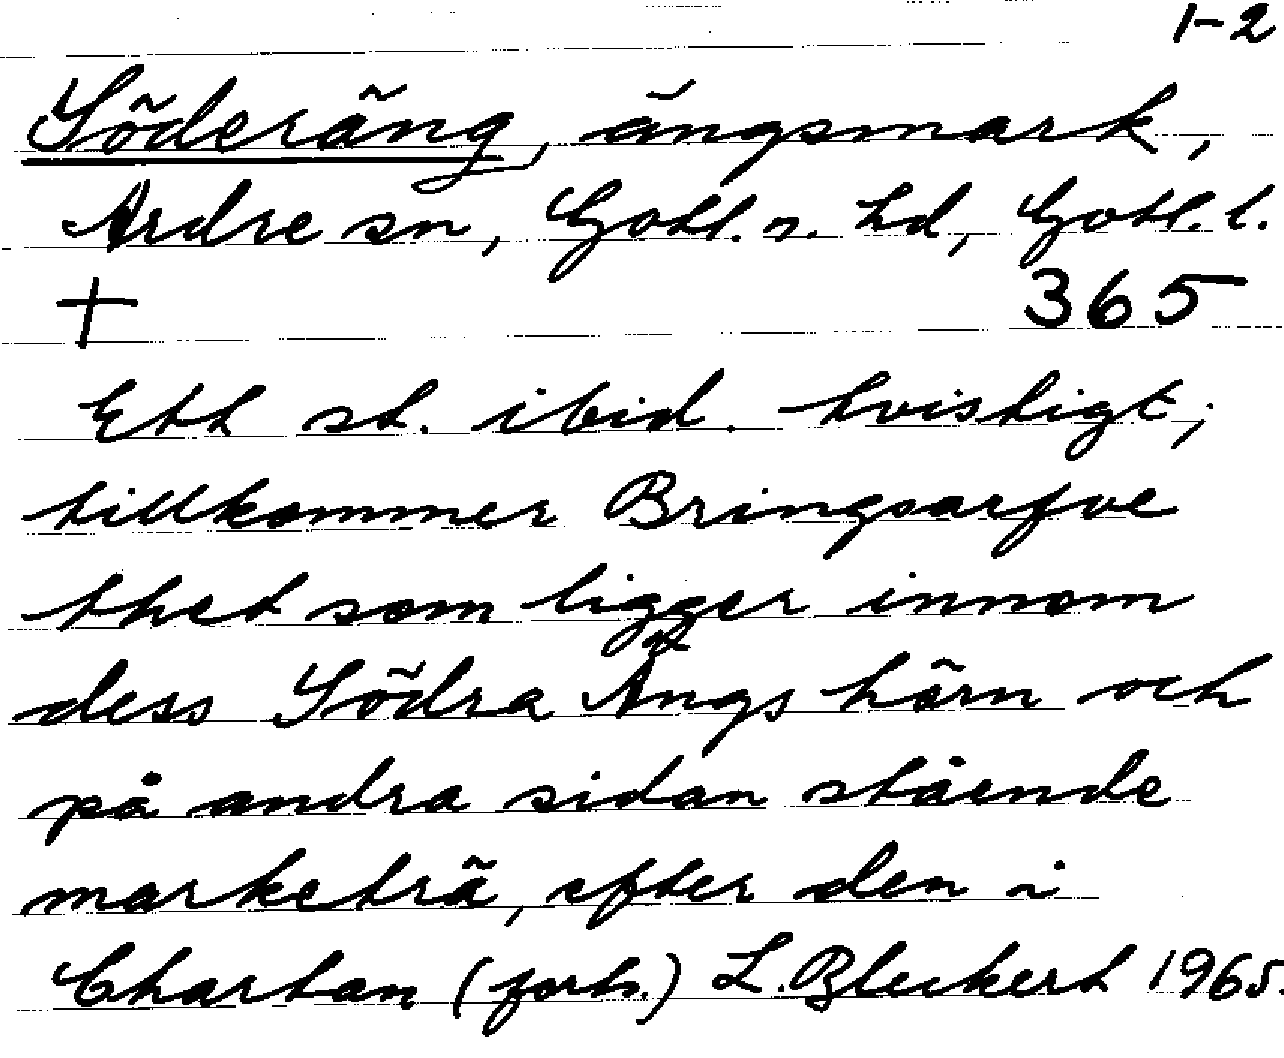 1-2
Söderäng, ängsmark,
Ardre sn, Gotl. n. hd, Gotl. l.
† 365
Ett st. ibid. tvistigt;
tillkommer Bringsarfve
thet som ligger innom
dess Södra Ängs hörn och
på andra sidan stående
marketrä, efter den i
Chartan (forts.) L. Bleckert 1965.